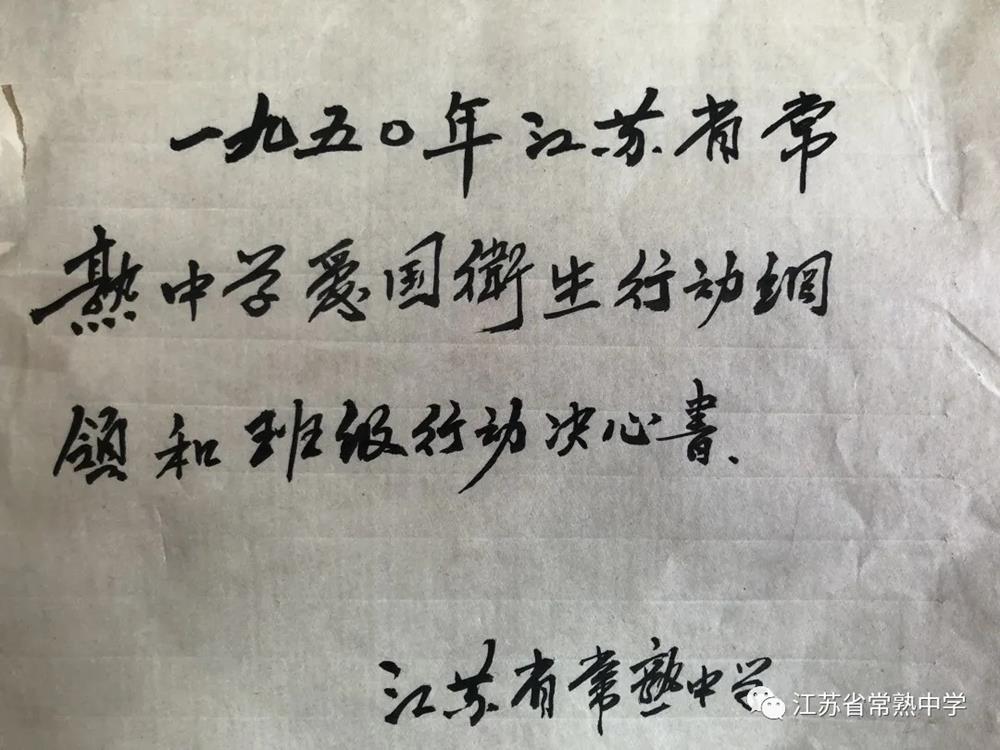 一九五〇年江苏省常
熟中学爱国衛生行动綱
領和班级行动决心書.
江苏省常熟中学
江苏省常熟中学